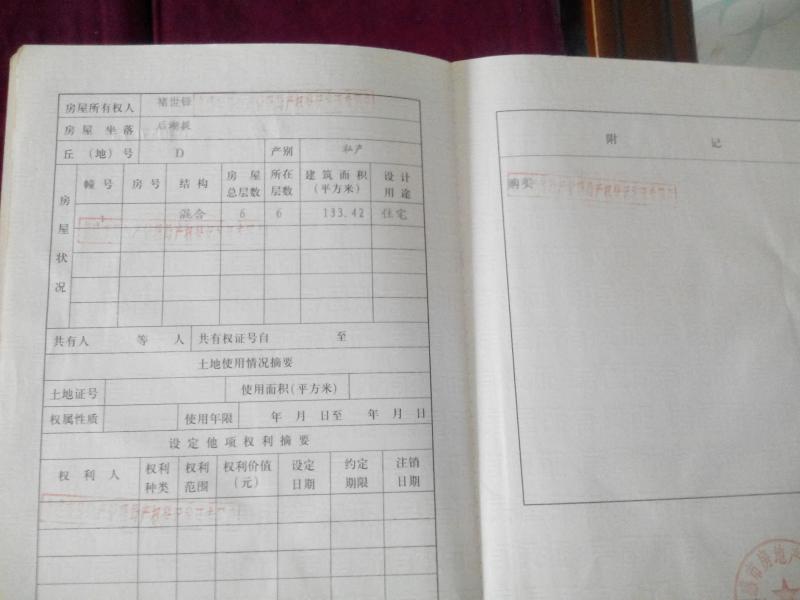 房屋所有权人 褚世锋
房屋坐落 后湖
丘(地)号 D 产别 私产
房屋状况
幢号 房号 结构 房屋总层数 所在层数 建筑面积(平方米) 设计用途
混合 6 6 133.42 住宅
共有人 等 人 共有权证号自 至
土地使用情况摘要
土地证号 使用面积(平方米)
权属性质 使用年限 年 月 日至 年 月 日
设定他项权利摘要
权利人 权利种类 权利范围 权利价值(元) 设定日期 约定期限 注销日期
附 记
购买
市房地产